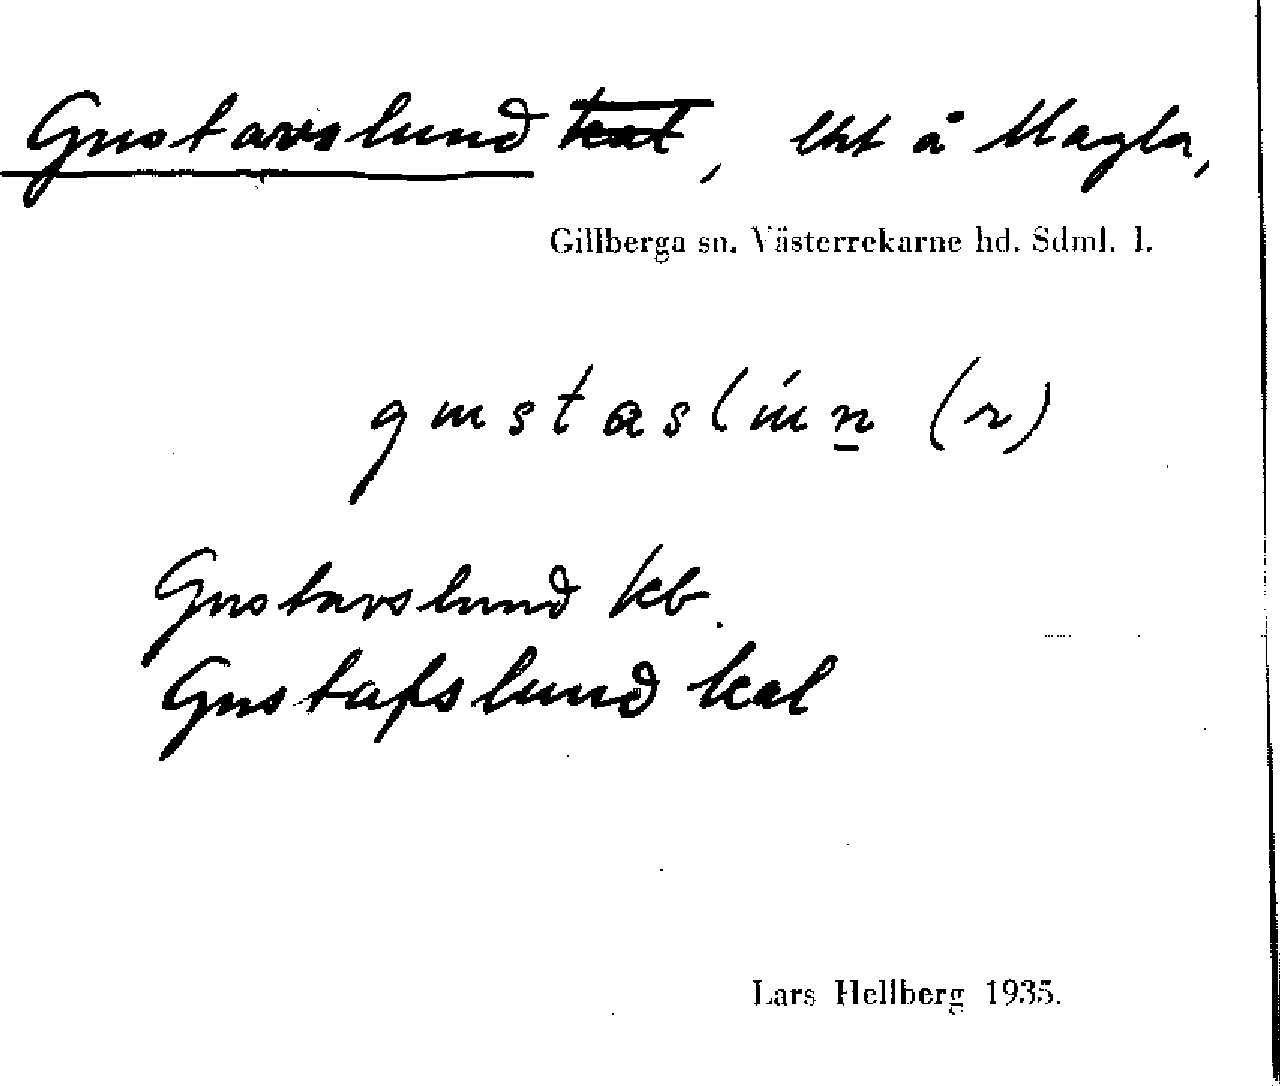 Gustavslund kal, lht å Magla,
Gillberga sn. Västerrekarne hd. Sdml. l.
gustaslún (r)
Gustavslund kb.
Gustafslund kal
Lars Hellberg 1935.